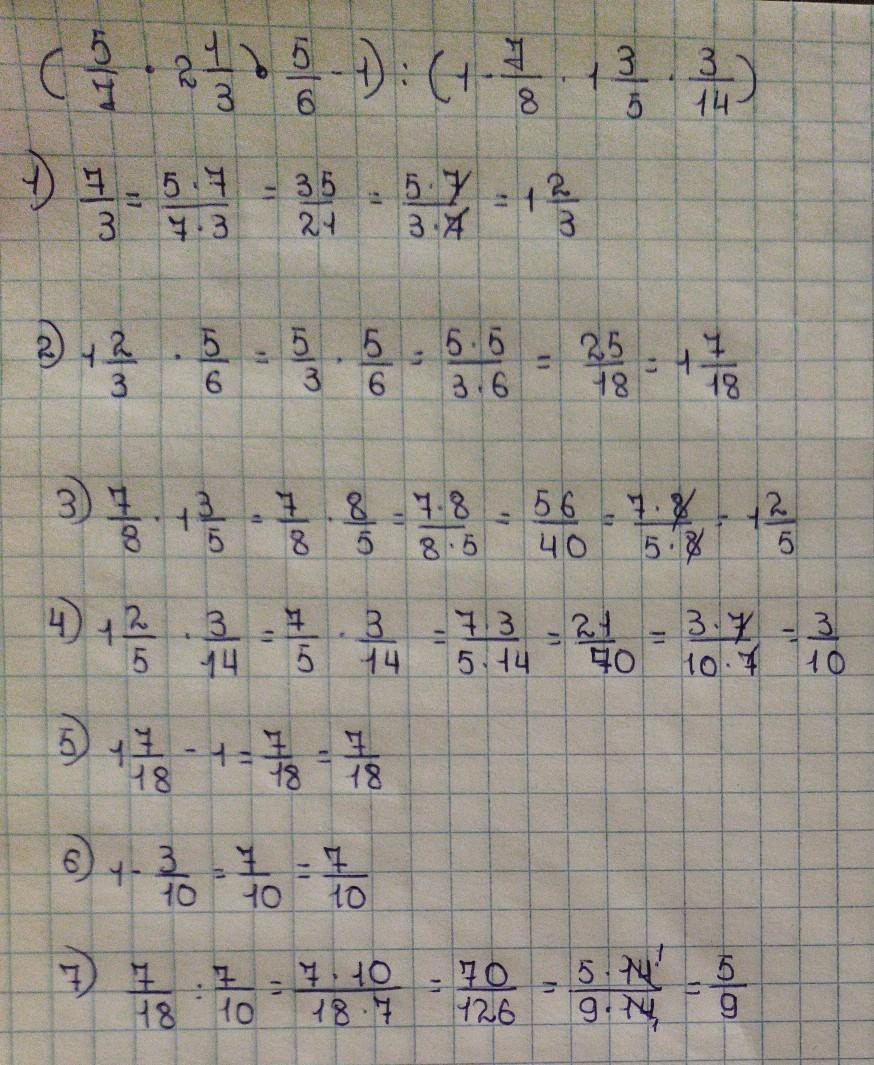 (5/7 · 2 1/3 · 5/6 - 1) : (1 - 7/8 · 1 3/5 · 3/14)
1) 7/3 = 5·7/7·3 = 35/21 = 5·7/3·7 = 1 2/3
2) 1 2/3 · 5/6 = 5/3 · 5/6 = 5·5/3·6 = 25/18 = 1 7/18
3) 7/8 · 1 3/5 = 7/8 · 8/5 = 7·8/8·5 = 56/40 = 7·8/5·8 = 1 2/5
4) 1 2/5 · 3/14 = 7/5 · 3/14 = 7·3/5·14 = 21/70 = 3·7/10·7 = 3/10
5) 1 7/18 - 1 = 7/18 = 7/18
6) 1 - 3/10 = 7/10 = 7/10
7) 7/18 : 7/10 = 7·10/18·7 = 70/126 = 5·14/9·14 = 5/9